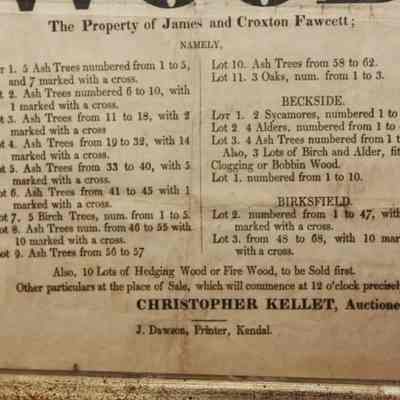 WOOD
The Property of James and Croxton Fawcett;
NAMELY,
ot 1. 5 Ash Trees numbered from 1 to 5,
and 7 marked with a cross.
ot 2. Ash Trees numbered 6 to 10, with
1 marked with a cross.
ot 3. Ash Trees from 11 to 18, with 2
marked with a cross
ot 4. Ash Trees from 19 to 32, with 14
marked with a cross.
ot 5. Ash Trees from 33 to 40, with 5
marked with a cross.
ot 6. Ash Trees from 41 to 45 with 1
marked with a cross.
ot 7. 5 Birch Trees, num. from 1 to 5.
ot 8. Ash Trees num. from 46 to 55 with
10 marked with a cross.
ot 9. Ash Trees from 56 to 57
Lot 10. Ash Trees from 58 to 62.
Lot 11. 3 Oaks, num. from 1 to 3.
BECKSIDE.
Lot 1. 2 Sycamores, numbered 1 to
Lot 2. 4 Alders, numbered from 1 to
Lot 3. 4 Ash Trees numbered from 1 t
Also, 3 Lots of Birch and Alder, fit
Clogging or Bobbin Wood.
Lot 1. numbered from 1 to 10.
BIRKSFIELD.
Lot 2. numbered from 1 to 47, with
marked with a cross.
Lot 3. from 48 to 68, with 10 mar
with a cross.
Also, 10 Lots of Hedging Wood or Fire Wood, to be Sold first.
Other particulars at the place of Sale, which will commence at 12 o'clock precisel
CHRISTOPHER KELLET, Auctionee
J. Dawson, Printer, Kendal.